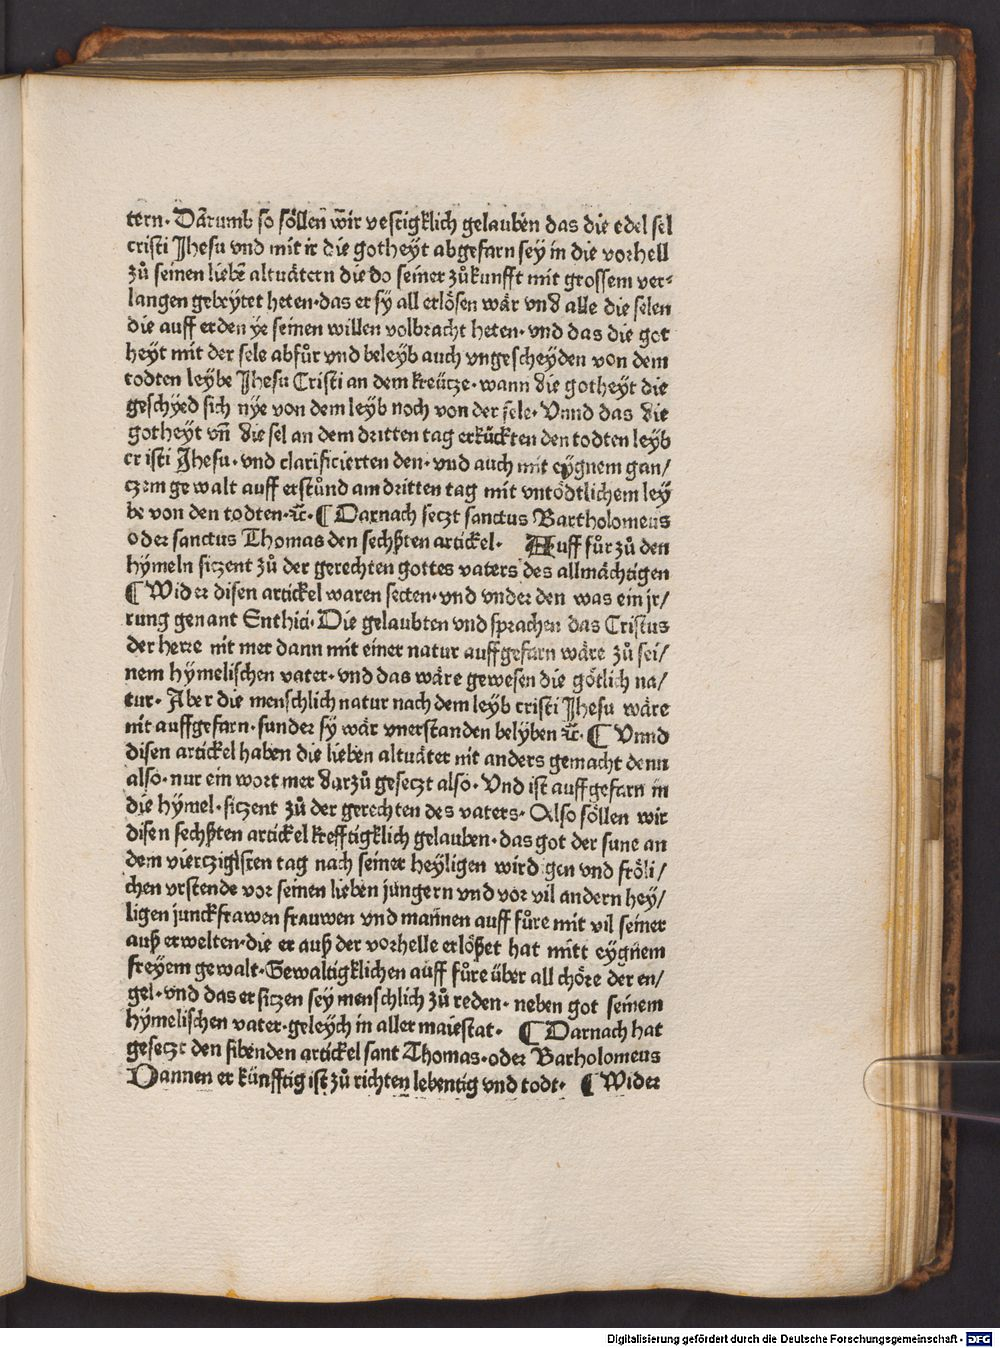 tern· Darumb so söllen wir vestigklich gelauben das die edel sel
cristi Jhesu vnd mit ir die gotheyt abgefarn sey in die vorhell
zů seinen liebē altuätern die do seiner zůkunfft mit grossem ver⸗
langen gebeytet heten·das er sy all erlösen wär vnd alle die selen
die auff erden ye seinen willen volbracht heten· vnd das die got
heyt mit der sele abfůr vnd beleyb auch vngescheyden von dem
todten leybe Jhesu Cristi an dem kreütze· wann die gotheyt die
geschyed sich nye von dem leyb noch von der sele· Vnnd das die
gotheyt vñ die sel an dem dritten tag erkückten den todten leyb
cristi Jhesu· vnd clarificierten den· vnd auch mit eygnem gan/
czem gewalt auff erstůnd am dritten tag mit vntödtlichem ley
be von den todten·ꝛc̄· ¶ Darnach seczt sanctus Bartholomeus
oder sanctus Thomas den sechßten artickel· Auff fůr zů den
hymeln siczent zů der gerechten gottes vaters des allmächtigen
¶ Wider disen artickel waren secten· vnd vnder den was ein jr/
rung genant Enthici· Die gelaubten vnd sprachen das Cristus
der herre nit mer dann mit einer natur auffgefarn wäre zů sei/
nem hymelischen vater· vnd das wäre gewesen die götlich na/
tur· Aber die menschlich natur nach dem leyb cristi Jhesu wäre
nit auffgefarn· sunder sy wär vnerstanden belyben ꝛc̄· ¶ Vnnd
disen artickel haben die lieben altuäter nit anders gemacht denn
also· nur ein wort mer darzů geseczt also· Vnd ist auffgefarn in
die hymel· siczent zů der gerechten des vaters· Also söllen wir
disen sechßten artickel krefftigklich gelauben· das got der sune an
dem vierczigisten tag nach seiner heyligen wirdigen vnd fröli/
chen vrstende vor seinen lieben jungern vnd vor vil andern hey/
ligen junckfrawen frauwen vnd mannen auff fůre mit vil seiner
auß erwelten·die er auß der vorhelle erlößet hat mitt eygnem
freyem gewalt·Gewaltigklichen auff fůre über all chöre der en/
gel· vnd das er siczen sey menschlich zů reden· neben got seinem
hymelischen vater·geleych in aller maiestat· ¶ Darnach hat
geseczt den sibenden artickel sant Thomas·oder Bartholomeus
Dannen er künfftig ist zů richten lebentig vnd todt· ¶ Wider
Digitalisierung gefördert durch die Deutsche Forschungsgemeinschaft - DFG